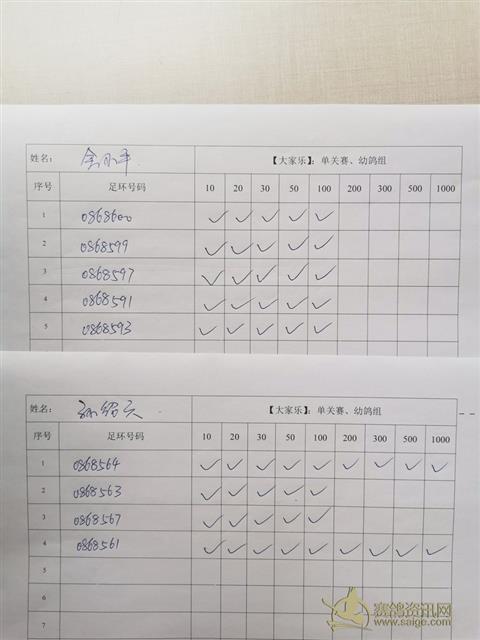 姓名： 【大家乐】：单关赛、幼鸽组
序号 足环号码 10 20 30 50 100 200 300 500 1000
1 0868600 ✓ ✓ ✓ ✓ ✓
2 0868599 ✓ ✓ ✓ ✓ ✓
3 0868597 ✓ ✓ ✓ ✓ ✓
4 0868591 ✓ ✓ ✓ ✓ ✓
5 0868593 ✓ ✓ ✓ ✓ ✓
姓名： 【大家乐】：单关赛、幼鸽组
序号 足环号码 10 20 30 50 100 200 300 500 1000
1 0868564 ✓ ✓ ✓ ✓ ✓ ✓ ✓ ✓ ✓
2 0868563 ✓ ✓ ✓ ✓ ✓
3 0868567 ✓ ✓ ✓ ✓ ✓
4 0868561 ✓ ✓ ✓ ✓ ✓ ✓ ✓ ✓ ✓
5
6
7
赛鸽资讯网
www.saige.com